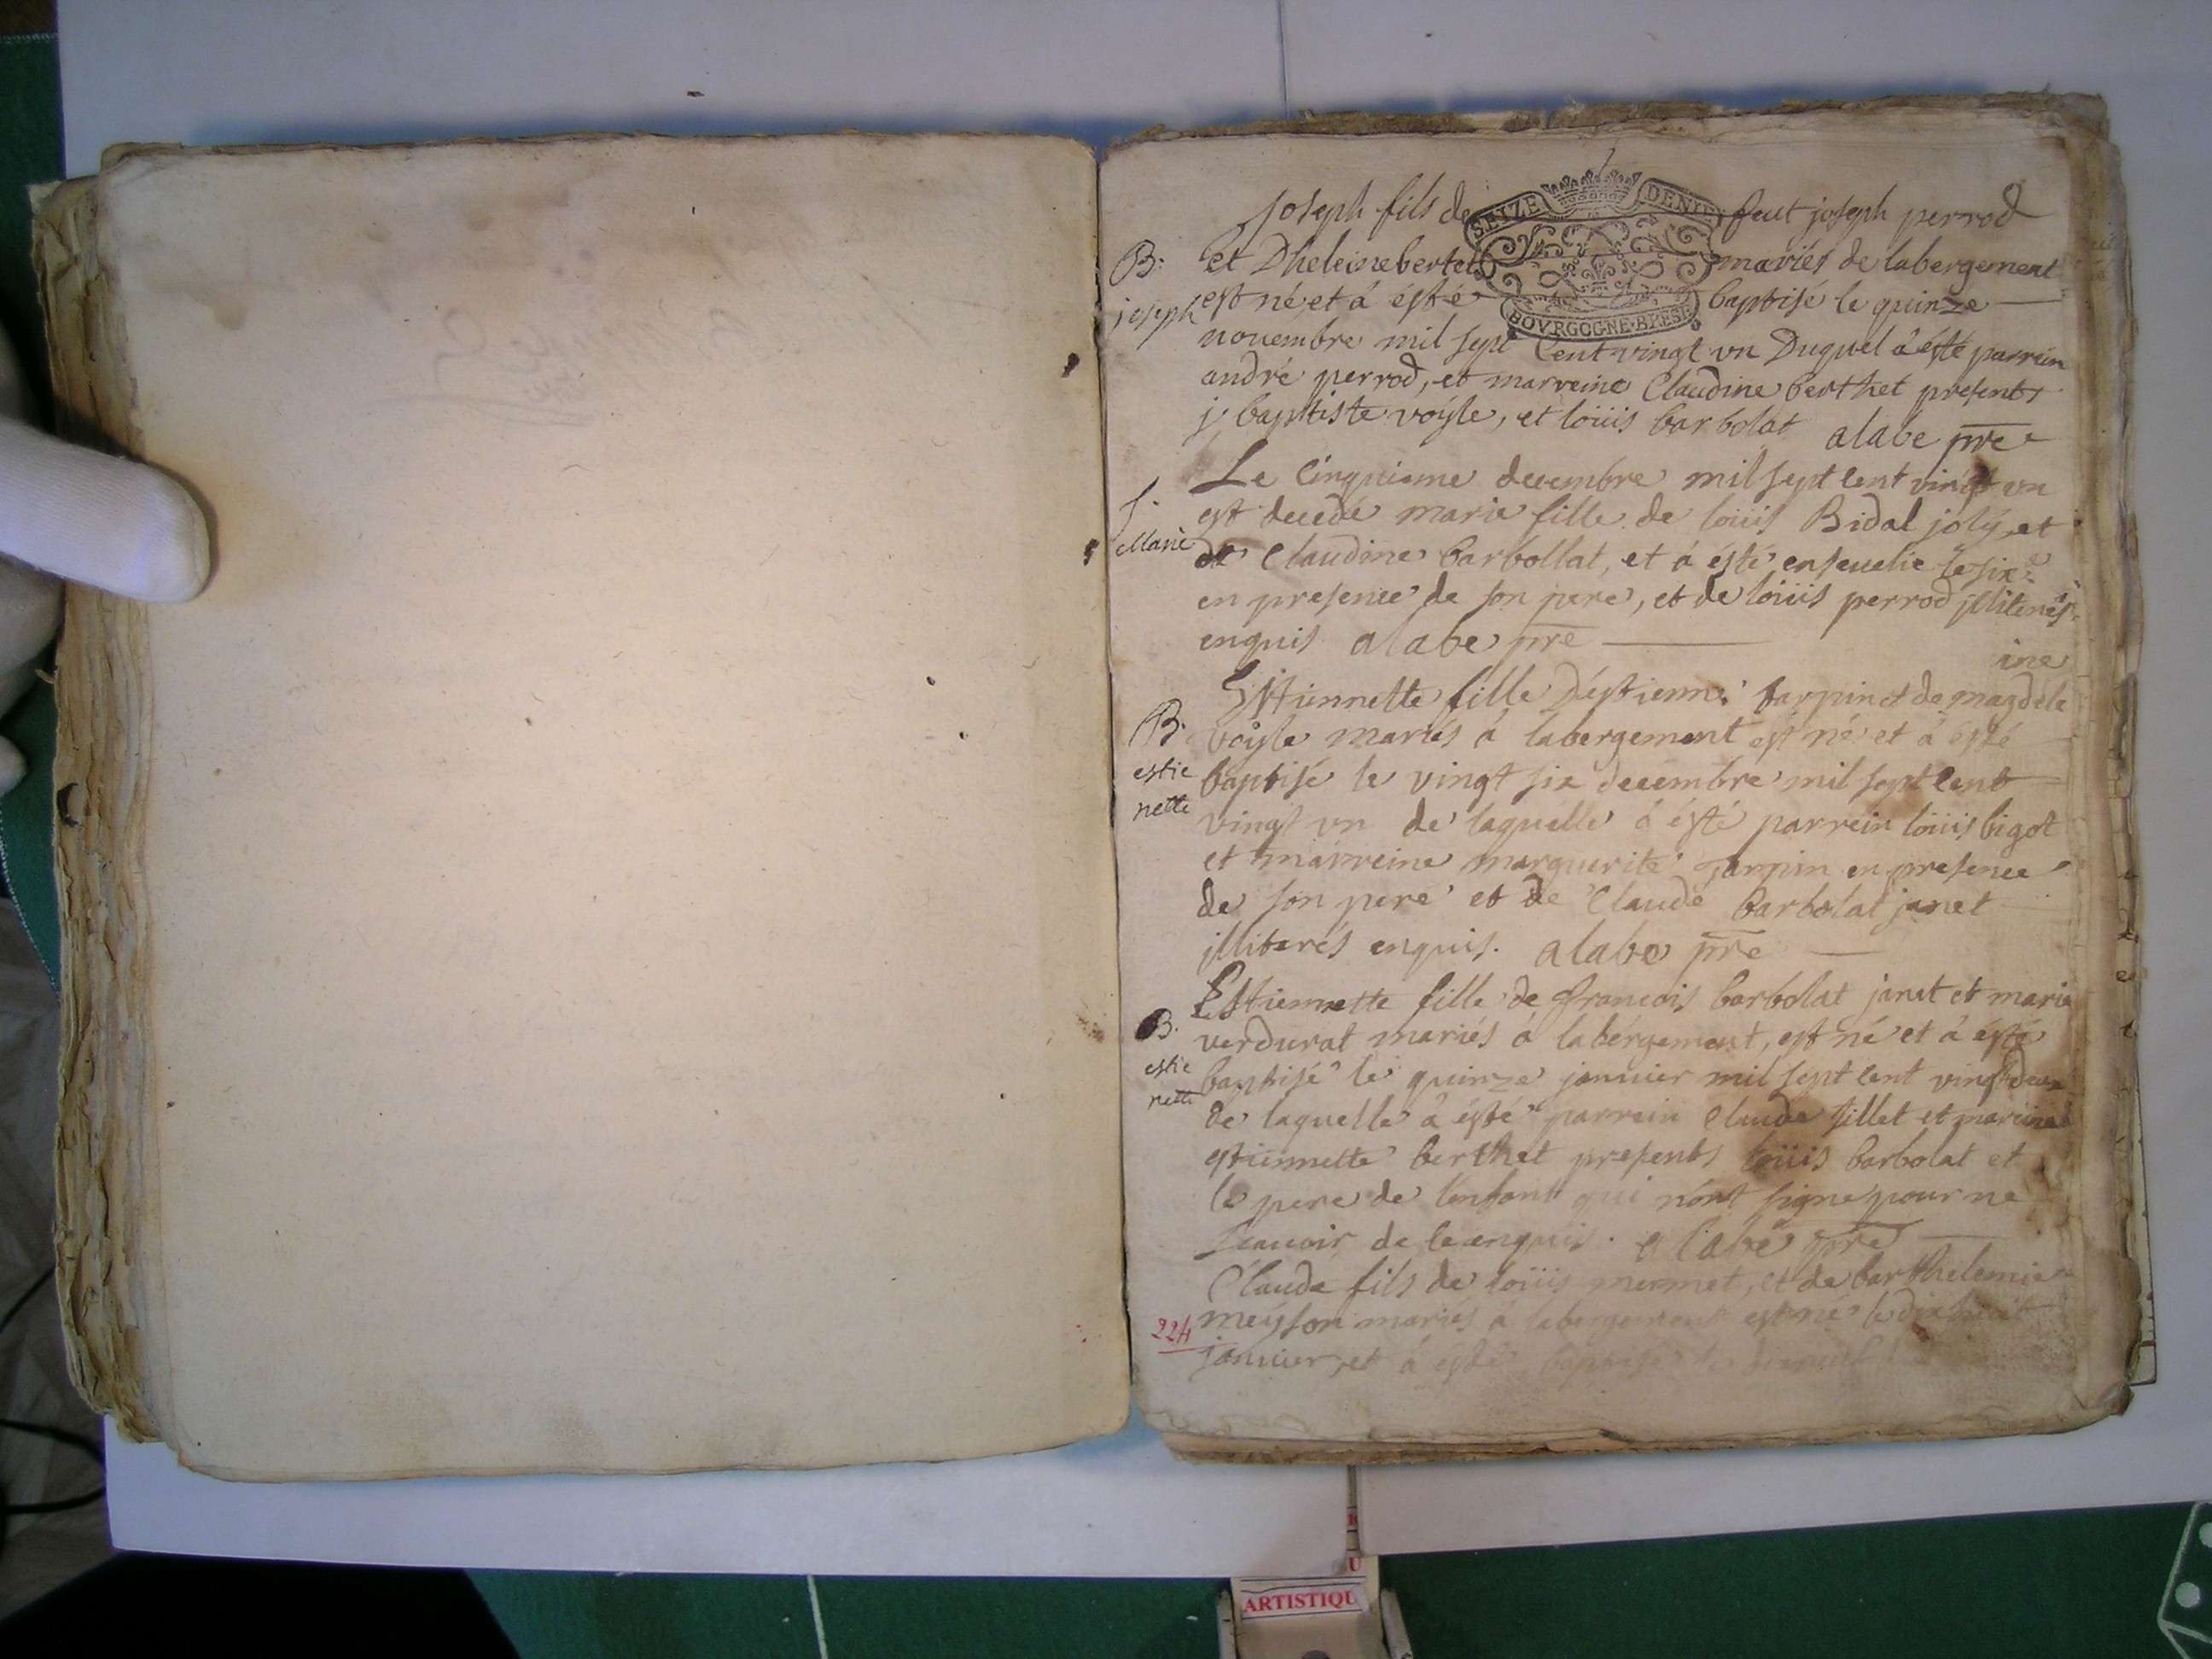 SEIZE DENIERS
BOVRGOGNE·BRESSE
joseph fils de feut joseph perrod
B:
joseph
et Dheleine bertet mariés de labergement
est né et à ésté baptisé le quinze
novembre mil sept Cent vingt un Duquel à ésté parrein
andré perrod, et marreine Claudine berthet presents
j. baptiste voysle, et loüis barbolat alabe pre
Le Cinquieme decembre mil sept Cent vingt un
Marie
est decedé marie fille de loüis Bidal joly, et
de Claudine barbollat, et à ésté ensevelie le six
en presence de son pere, et de loüis perrod jlliterés
enquis alabe pre
ine
Esttiennette fille D'éstienne tarpin et de magdele
B.
estie
nette
voysle mariés à labergement est né et à ésté
baptisé le vingt six decembre mil sept Cent
vingt un de laquelle à ésté parrein loüis bigot
et marreine marguerite tarpin en presence
de son pere et de Claude barbolat janet
jlliterés enquis. alabe pre
Esttiennette fille de francois barbolat janet et marie
B.
estie
nette
verdurat mariés à labergement, est né et à ésté
baptisé le quinze janvier mil sept Cent vingt deux
de laquelle à ésté parrein Claude fillet et mareine
estiennette berthet presents loüis barbolat et
le pere de l'enfant qui n'ont signe pour ne
scavoir de ce enquis. alabe pre
Claude fils de loüis mermet, et de barthelemie
224
meyson mariés à labergement est né le dix huit
janvier, et à ésté baptisé le
ARTISTIQU